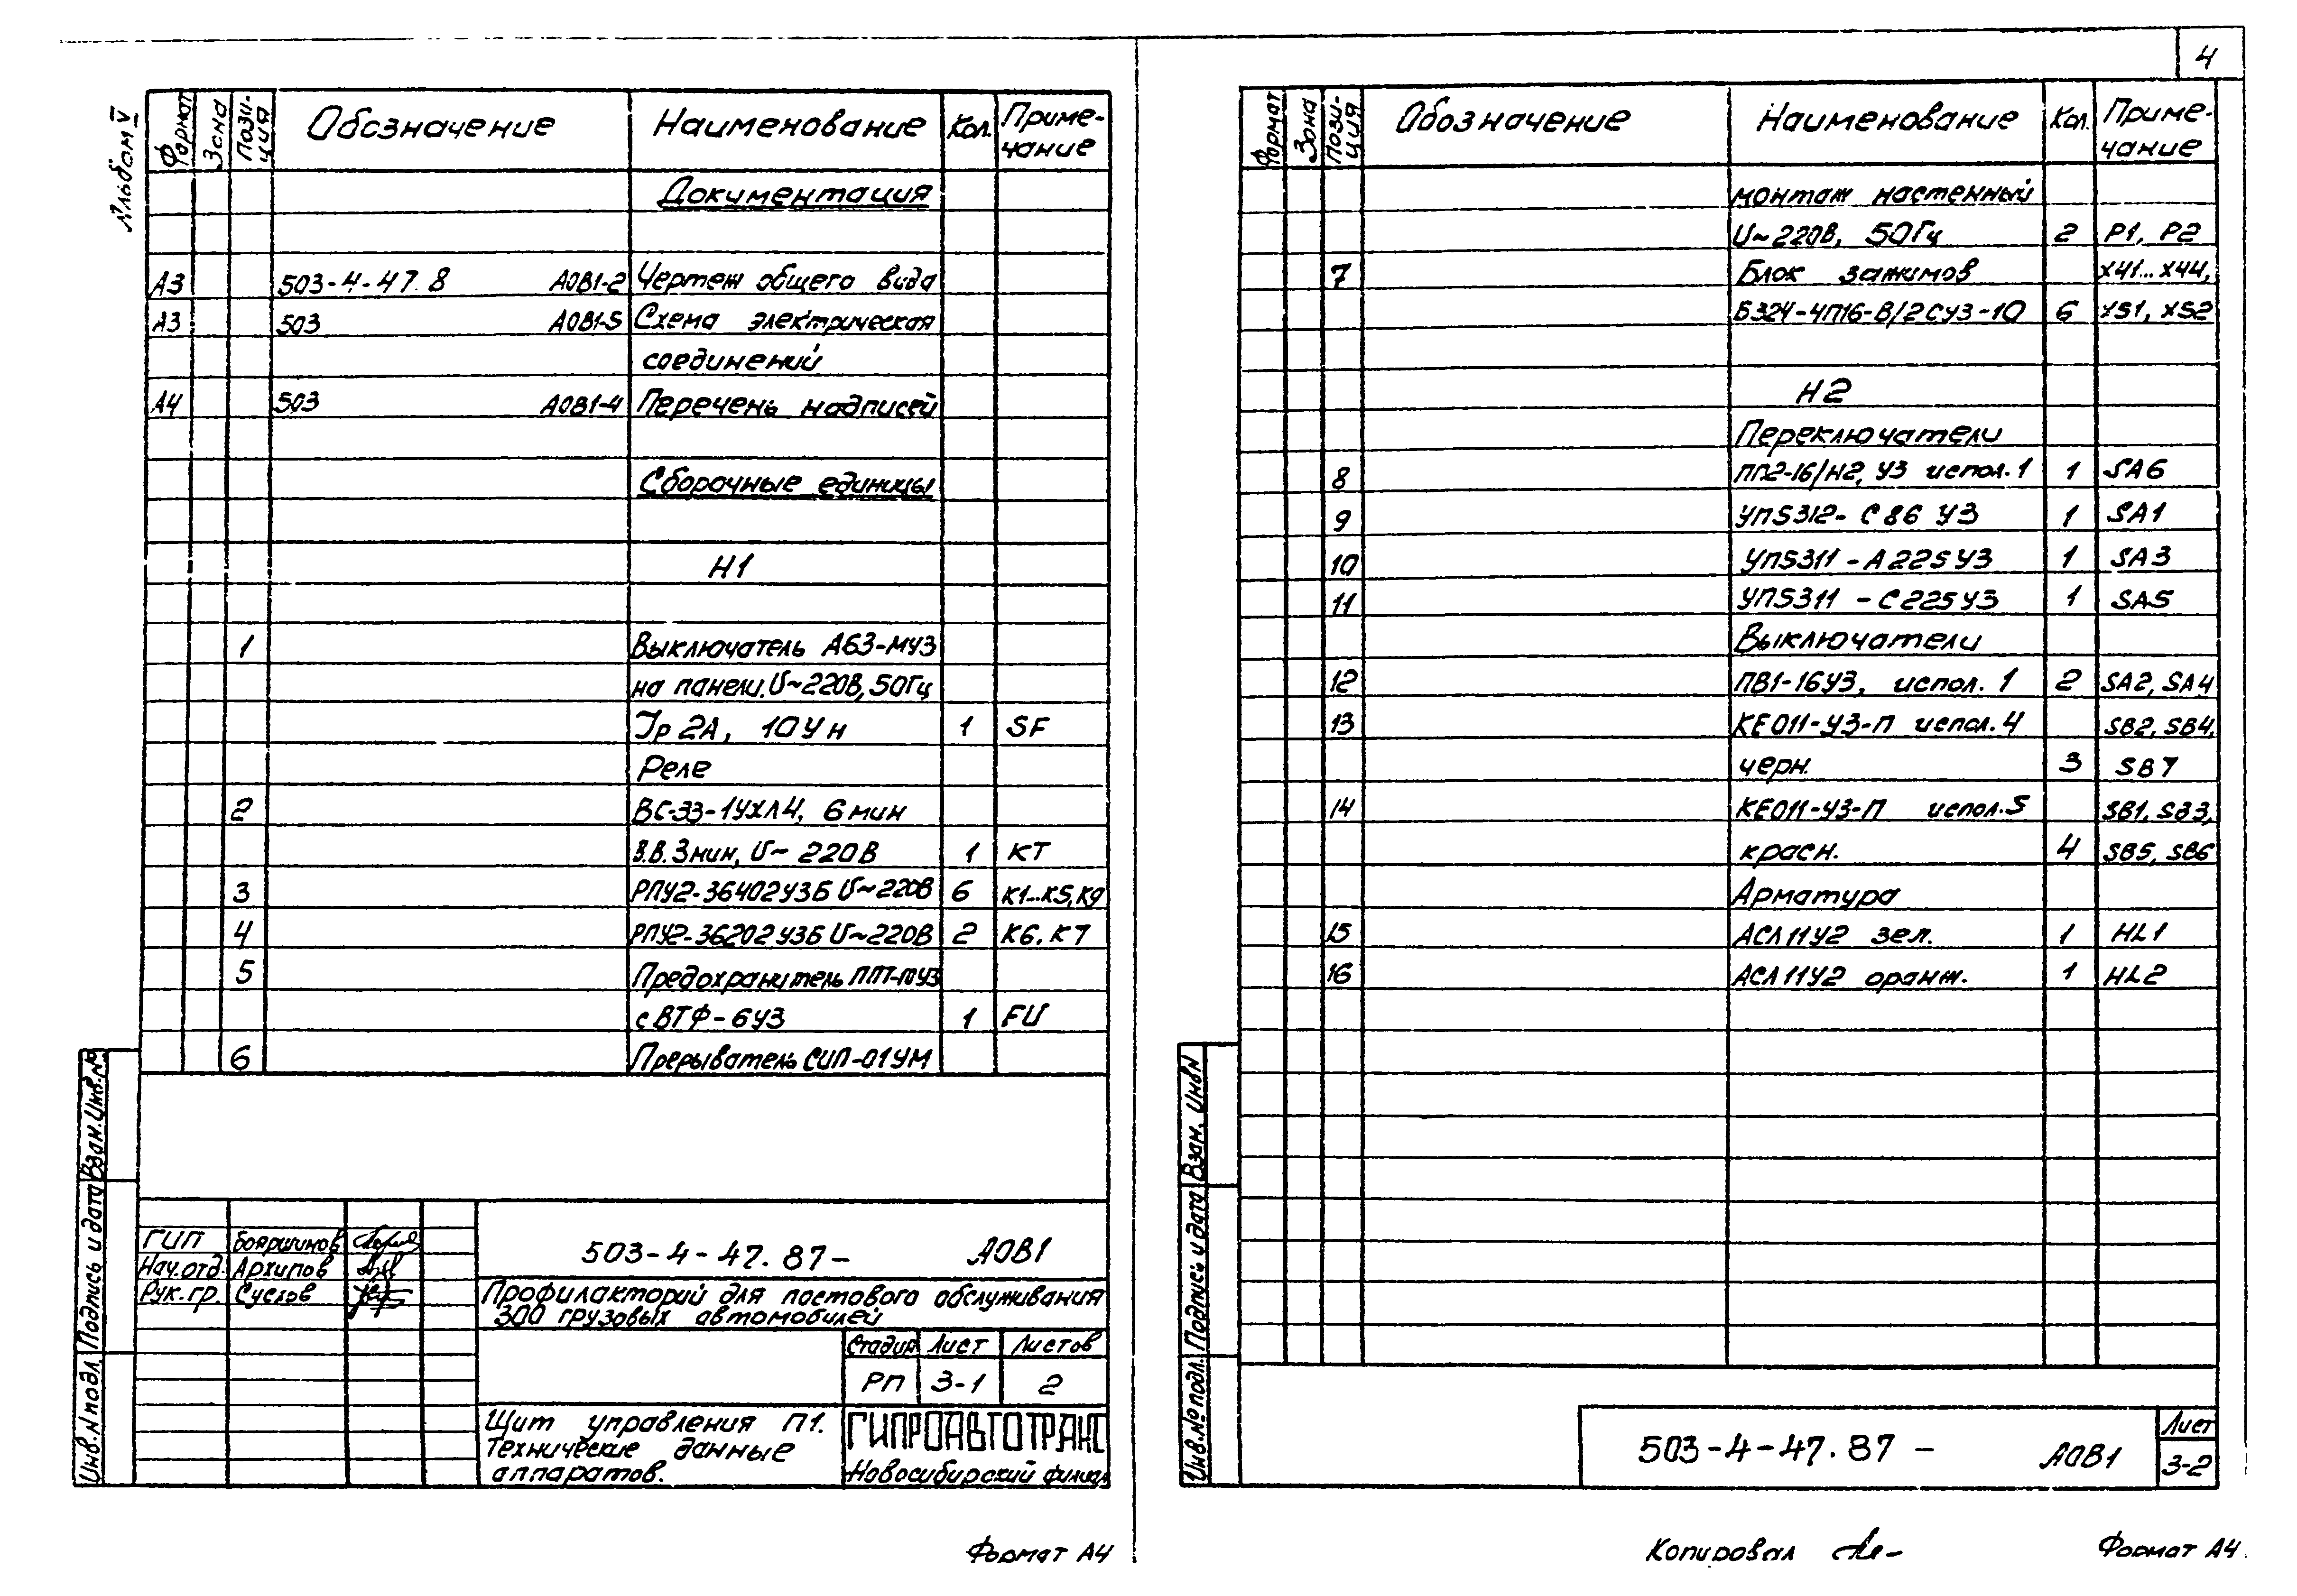 Альбом V
Формат Зона Пози-ция Обозначение Наименование Кол. Приме-чание
Документация
А3 503-4-47.8 АОВ1-2 Чертеж общего вида
А3 503 АОВ1-5 Схема электрическая
соединений
А4 503 АОВ1-4 Перечень надписей
Сборочные единицы
Н1
1 Выключатель А63-МУ3
на панели. U~220В, 50Гц
Iр 2А, 10Ун 1 SF
Реле
2 ВС-33-1УХЛ4, 6 мин
В.В. 3мин, U~ 220В 1 КТ
3 РПУ2-36402У3Б U~220В 6 К1...К5, К9
4 РПУ2-36202У3Б U~220В 2 К6, К7
5 Предохранитель ППТ-10У3
с ВТФ-6У3 1 FU
6 Прерыватель СИП-01УМ
Взан. Инв.№
Подпись и дата
Инв.№ подл.
ГИП Бояршинов
Нач.отд. Архипов
Рук.гр. Суслов
503-4-47.87- АОВ1
Профилакторий для постового обслуживания
300 грузовых автомобилей
Стадия Лист Листов
РП 3-1 2
Щит управления П1.
Технические данные
аппаратов.
ГИПРОАВТОТРАНС
Новосибирский филиал
Формат А4
4
Формат Зона Пози-ция Обозначение Наименование Кол. Приме-чание
монтаж настенный
U~220В, 50Гц 2 Р1, Р2
7 Блок зажимов Х41...Х44,
БЗ24-4П16-В/2СУ3-10 6 XS1, XS2
Н2
Переключатели
8 ПП2-16/Н2, У3 испол.1 1 SA6
9 УП5312-С86 У3 1 SA1
10 УП5311-А225У3 1 SA3
11 УП5311-С225У3 1 SA5
Выключатели
12 ПВ1-16У3, испол. 1 2 SA2, SA4
13 КЕ011-У3-П испол.4 SB2, SB4,
черн. 3 SB7
14 КЕ011-У3-П испол.5 SB1, SB3,
красн. 4 SB5, SB6
Арматура
15 АСЛ11У2 зел. 1 HL1
16 АСЛ11У2 оранж. 1 HL2
Взан. Инв№
Подпись и дата
Инв.№ подл.
503-4-47.87- АОВ1
Лист
3-2
Копировал
Формат А4